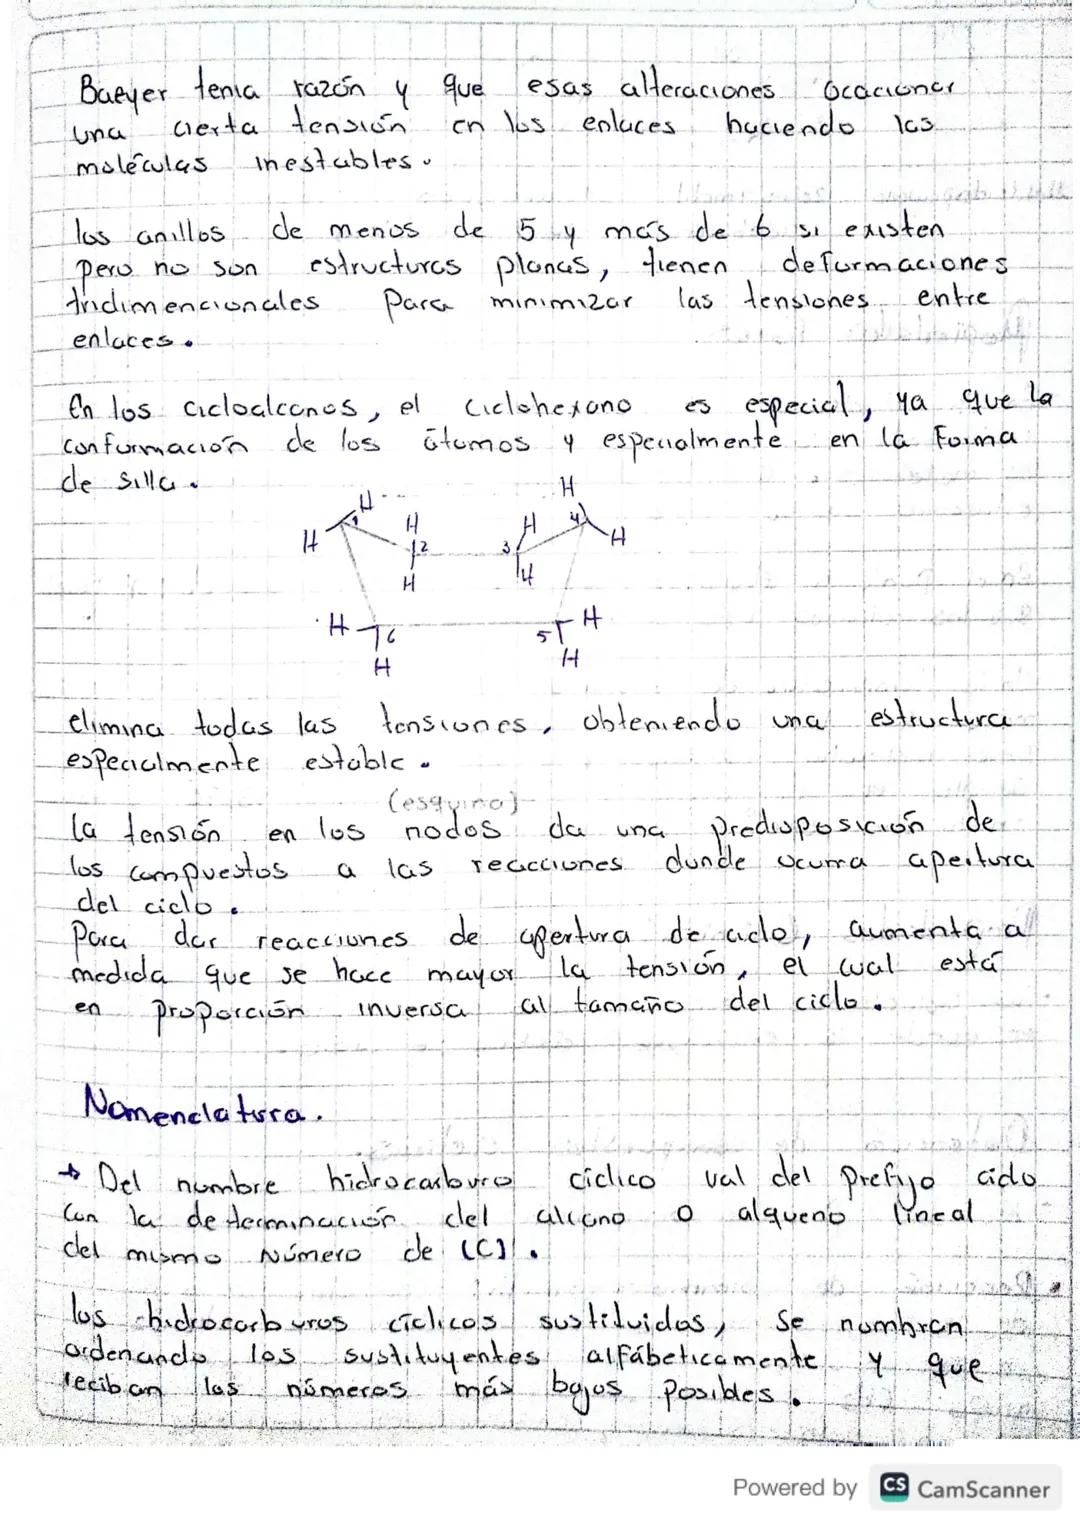 Baeyer tenia razón y que esas alteraciones ocacionar
una cierta tensión en los enlaces haciendo las
moléculas inestables.
los anillos de menos de 5 y más de 6 si existen
pero no son estructuras planas, tienen deformaciones
tridimencionales para minimizar las tensiones entre
enlaces.
En los cicloalcanos, el ciclohexano es especial, ya que la
conformación de los átomos y especialmente en la Forma
de silla.
H H H 1 H 2 H H 3 H H 4 H
H 6 H 5 H H
elimina todas las tensiones, obteniendo una estructura
especialmente estable.
(esquina)
la tensión en los nodos da una predisposición de
los compuestos a las reacciones dunde ocurra apertura
del ciclo.
Para dar reacciones de apertura de ciclo, aumenta a
medida que se hace mayor la tensión, el cual está
en proporción inversa al tamaño del ciclo.
Nomenclatura.
→ Del nombre hidrocarburo cíclico val del Prefijo ciclo
Con la determinación del alcano o alqueno lineal
del mismo Número de (C).
los hidrocarburos cíclicos sustituidos, se nombran
ordenando los sustituyentes alfábeticamente y que
reciban las números más bajos posibles.
Powered by CS CamScanner